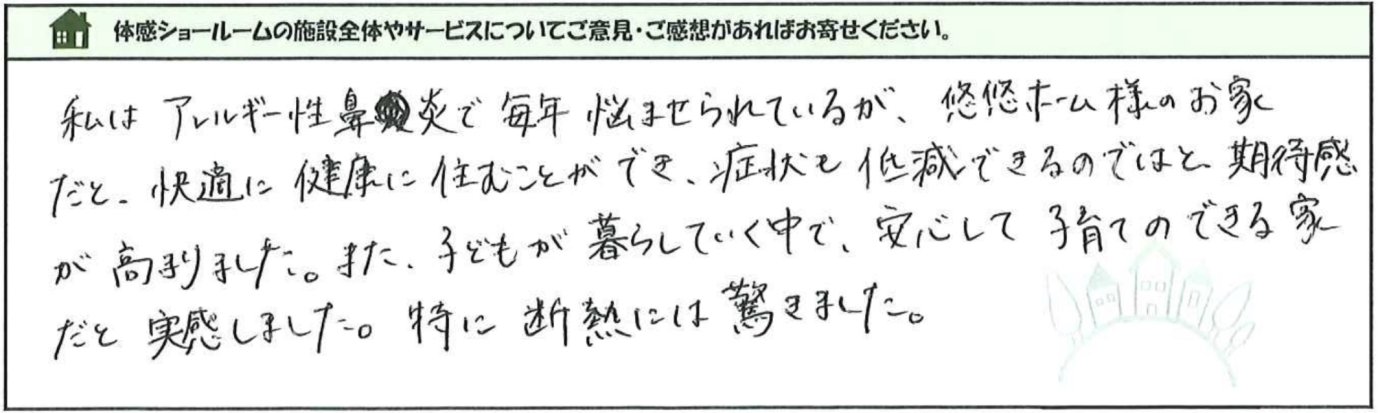 体感ショールームの施設全体やサービスについてご意見・ご感想があればお寄せください。
私は アレルギー性鼻炎で 毎年 悩ませられているが、悠悠ホーム様のお家
だと、快適に 健康に 住むことができ、症状も 低減できるのではと、期待感
が 高まりました。また、子どもが 暮らしていく中で、安心して 子育てのできる 家
だと 実感しました。特に 断熱には 驚きました。